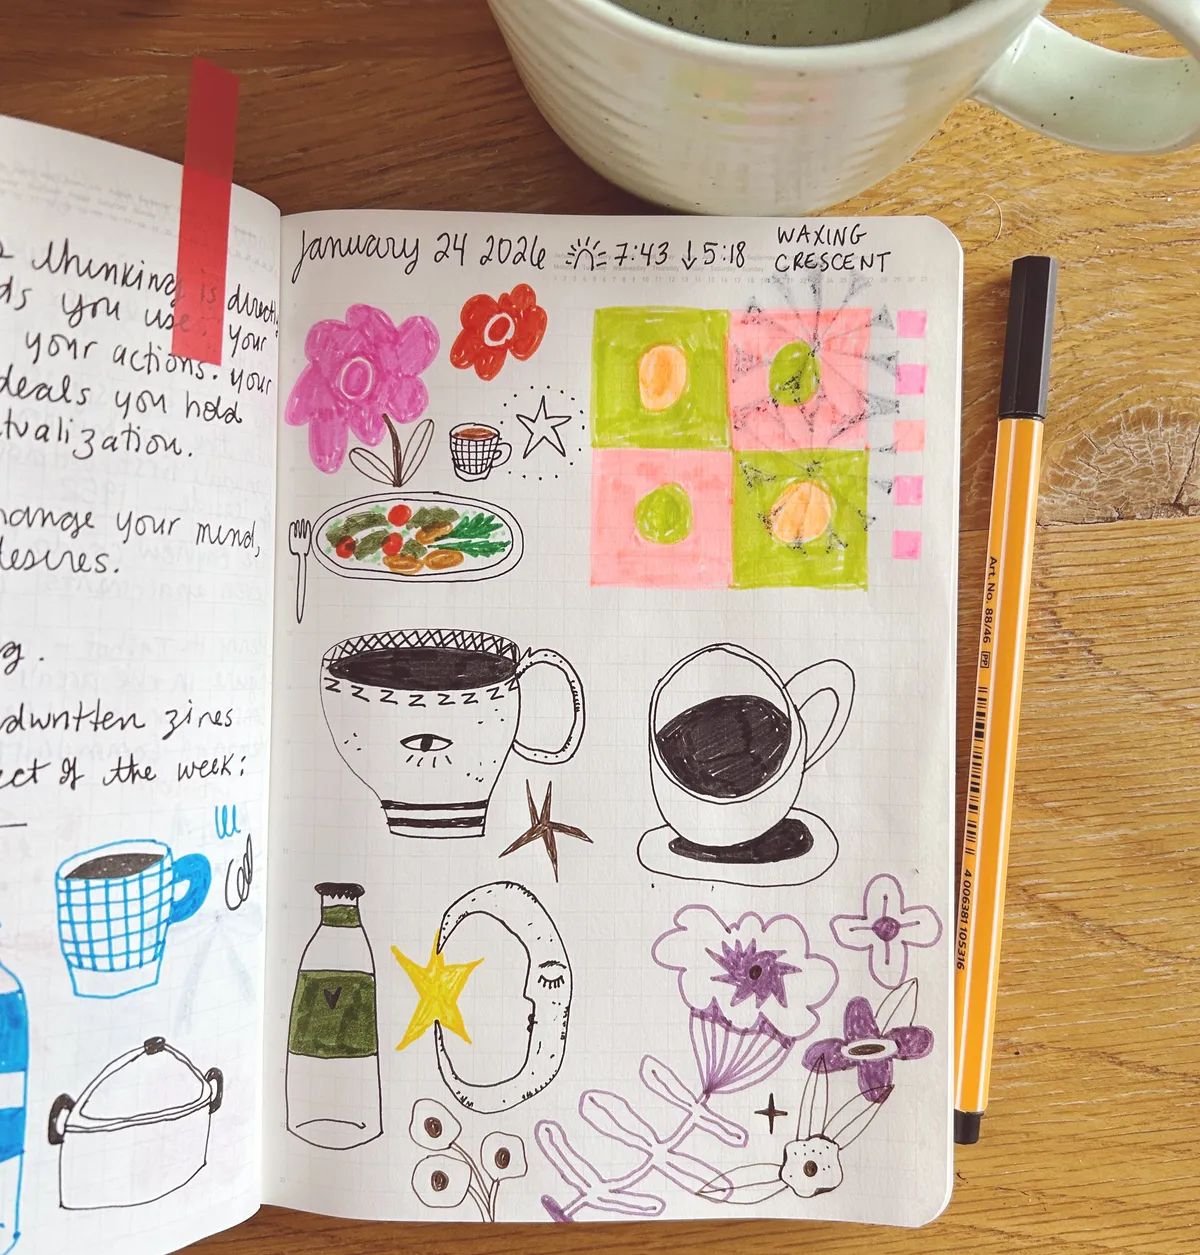 thinking is directl
ds you use. your
your actions. your
deals you hold
tualization.
hange your mind,
desires.
g.
dwritten zines
ect of the week:
January 24 2026 7:43 ↓5:18
WAXING
CRESCENT
Art. No. 88/46 PP
4 006381 105316